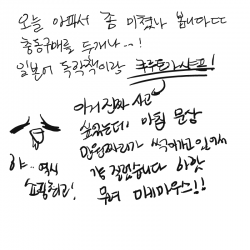 오늘 아파서 좀 미쳤나 봅니다
충동구매를 두개나...!
일본어 독학책이랑 쿠루토가샤프!
아거진짜 사고
싶었는데 마침 문상
만원짜리가 썩어가고 있어서
걍 질렀습니다 하핫
햐.. 역시
쇼핑최고!
무려 미키마우스!!